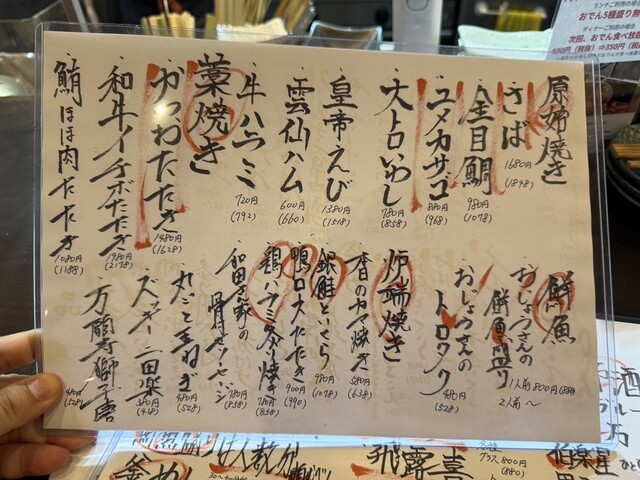 原始焼き
・さば 1680円 (1848)
・金目鯛 980円 (1078)
・ユメカサゴ 880円 (968)
・大トロいわし 780円 (858)
・皇帝えび 1380円 (1518)
・雲仙ハム 600円 (660)
・牛ハラミ 720円 (792)
・藁焼き
・かつおたたき 1480円 (1628)
・和牛イチボたたき 1980円 (2178)
・鮪ほほ肉たたき 1080円 (1188)
鮮魚
・おじょうさんの鮮魚盛り 1人前800円
2人前〜
・おじょうさんのトロタク 480円 (528)
・炉端焼き
580円 (638)
・銀鮭といくら 980円 (1078)
・鴨ロースたたき 900円 (990)
・鶏ハラミ炙り焼き 780円 (858)
・和田さん家の骨付ソーセージ 780円 (858)
・丸ごと玉ねぎ 480円 (528)
・ズッキーニ田楽 380円 (418)
・万願寺獅子唐 480円 (528)
おでん5種盛り無
次回、おでん食べ放
500円（税抜）⇒350円（税
釜め
飛露喜
グラス800円
(880)
伯楽星